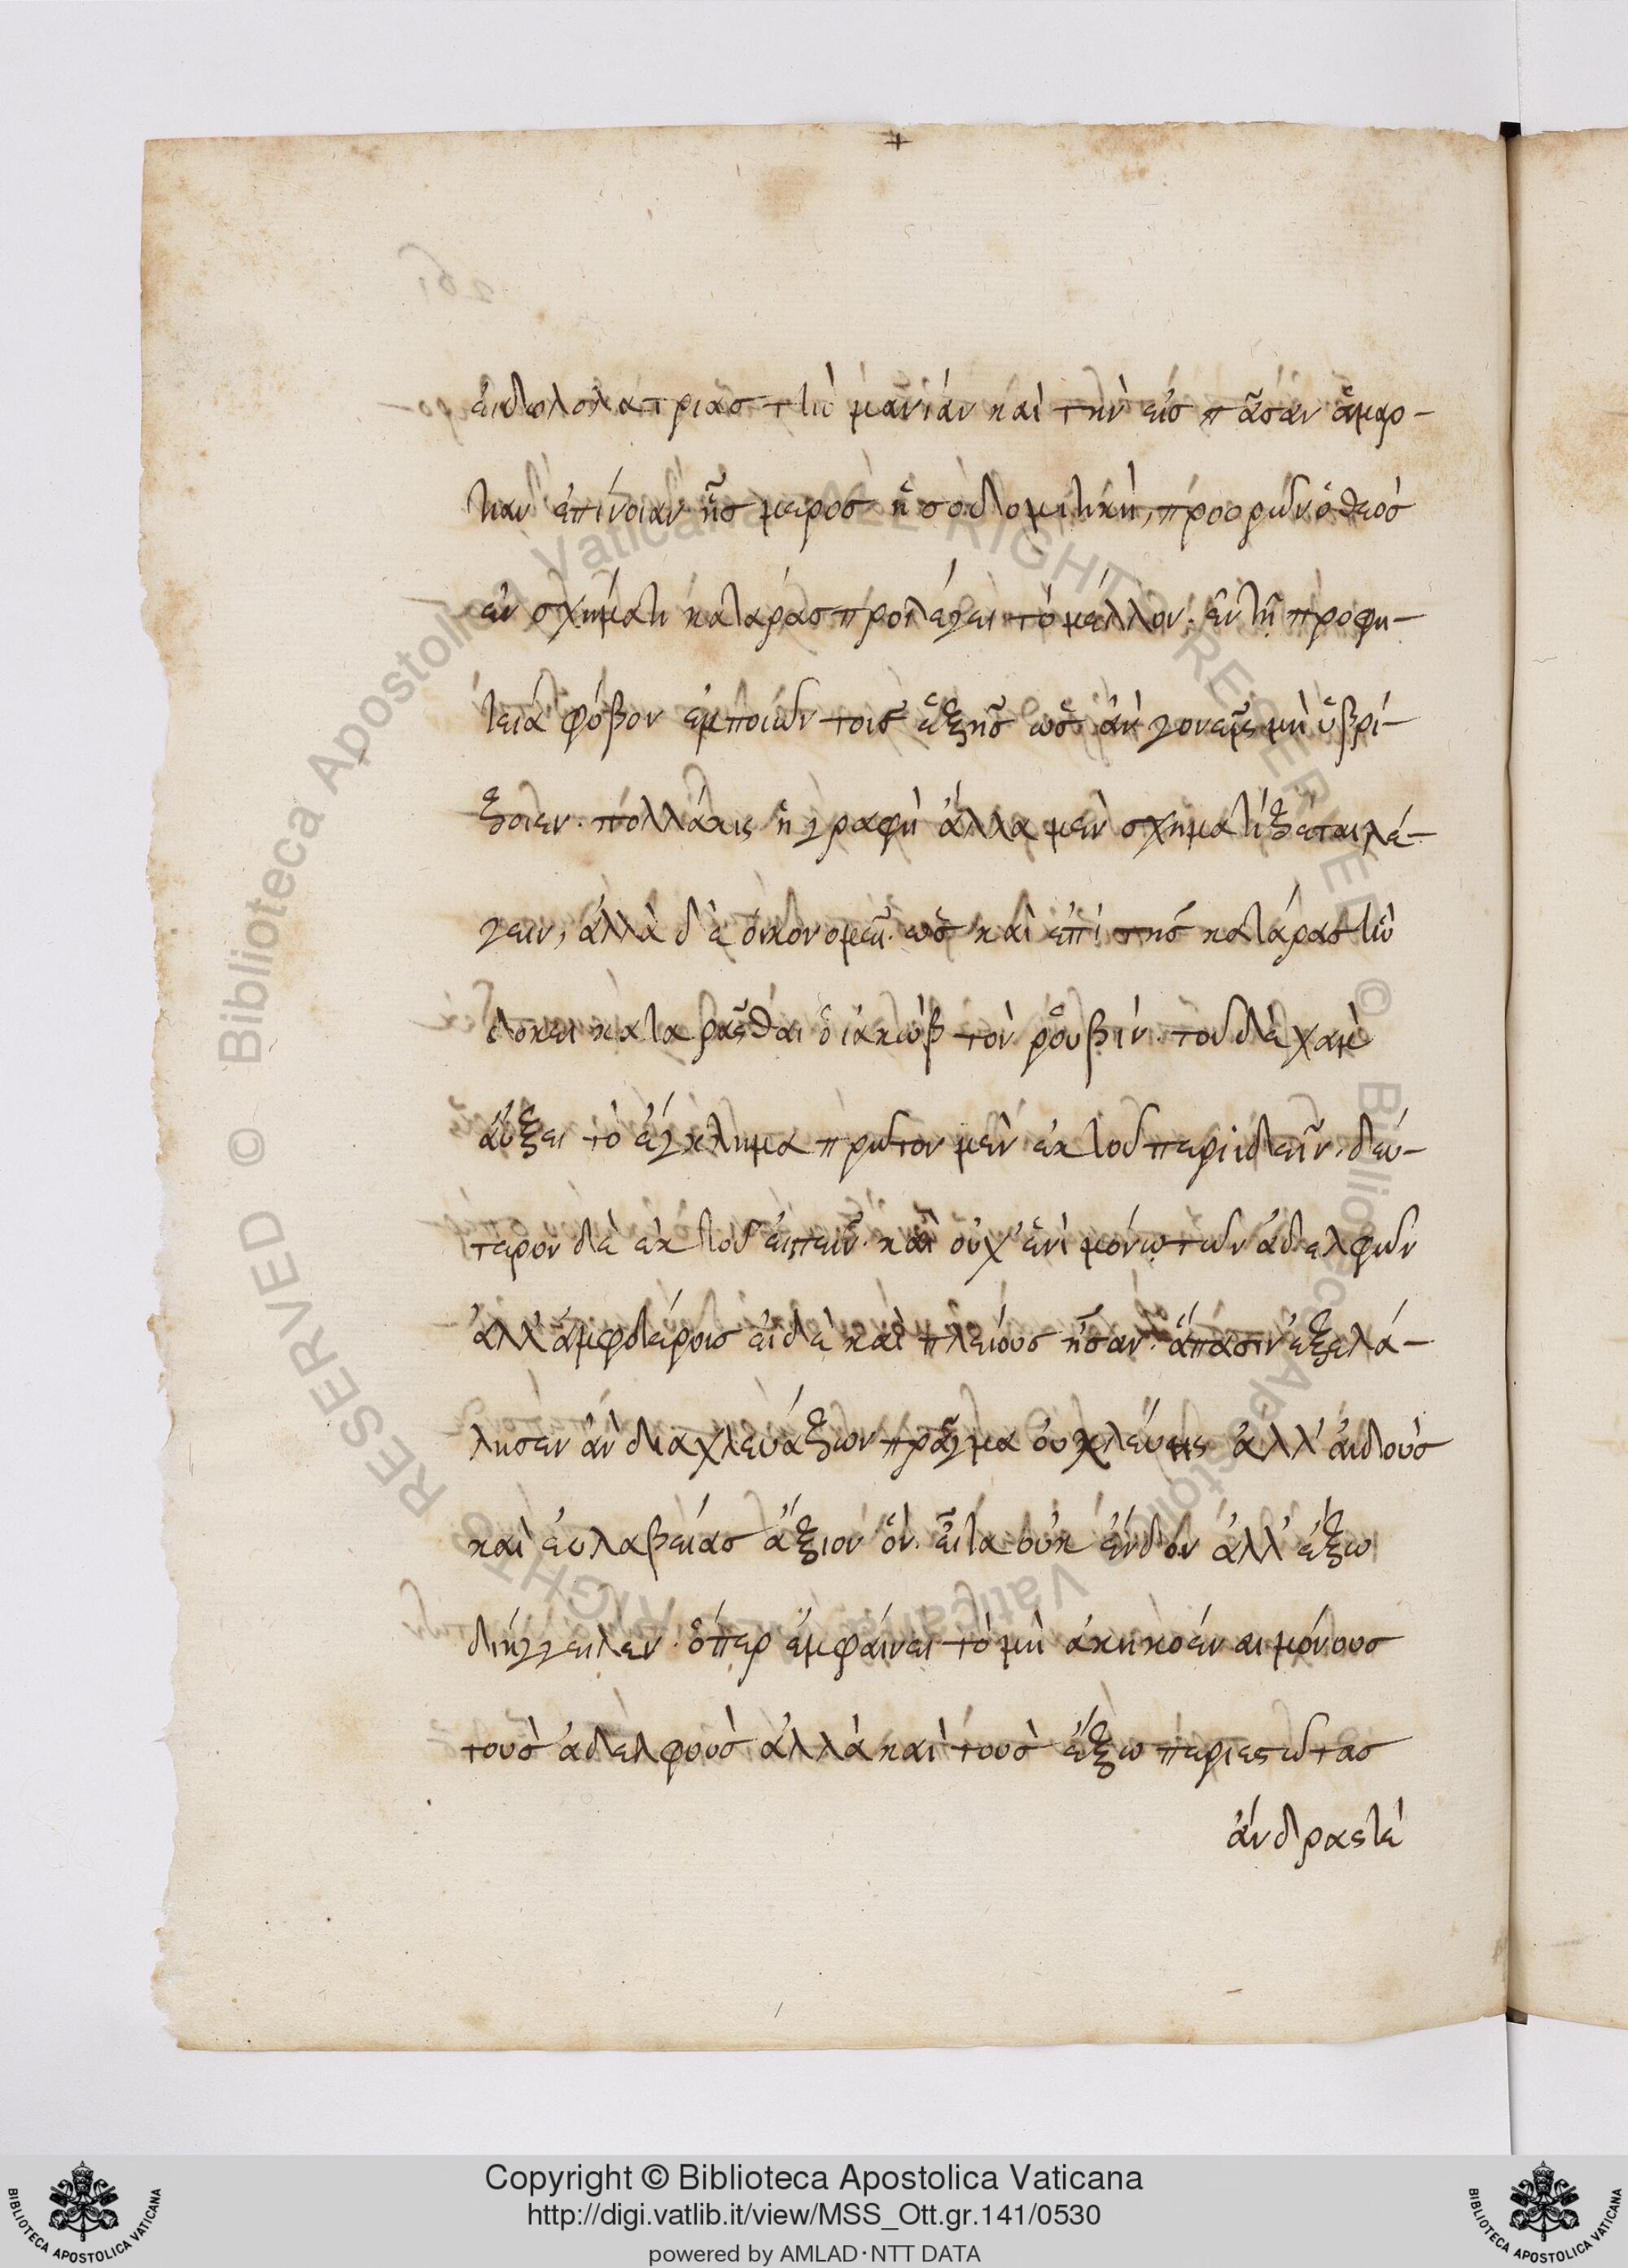 +
εἰδωλολατρίας τὴν μανίαν καὶ τὴν εἰς πᾶσαν ἁμαρ-
τίαν ἐπίνοιαν ἧς μέρος ἡ σοδομιτικὴ, προορῶν ὁ θεὸς
ἐν σχήματι κατάρας προλέγει τὸ μέλλον. ἐν τῇ προφη-
τείᾳ φόβον ἐμποιῶν τοῖς ἑξῆς ὡς ἂν γονεῖς μὴ ὑβρί-
ζοιεν. πολλάκις ἡ γραφὴ ἄλλα μὲν σχηματίζεται λέ-
γειν, ἄλλα δὲ οἰκονομεῖ. ὡς καὶ ἐπὶ τῆς κατάρας ἣν
δοκεῖ καταρᾶσθαι ὁ ἰακὼβ τὸν ῥουβίν. τοῦ δὲ χαμ
αὔξει τὸ ἔγκλημα πρῶτον μὲν ἐκ τοῦ περιιδεῖν. δεύ-
τερον δὲ ἐκ τοῦ εἰπεῖν. καὶ οὐχ ἑνὶ μόνῳ τῶν ἀδελφῶν
ἀλλ' ἀμφοτέροις εἰ δὲ καὶ πλείους ἦσαν. ἅπασιν ἐξελά-
λησεν ἂν διαχλευάζων πρᾶγμα οὐ χλεύης ἀλλ' αἰδοῦς
καὶ εὐλαβείας ἄξιον ὄν. εἶτα οὐκ ἔνδον ἀλλ' ἔξω
διήγγειλεν. ὅπερ ἐμφαίνει τὸ μὴ ἀκηκοέναι μόνους
τοὺς ἀδελφοὺς ἀλλὰ καὶ τοὺς ἔξω περιεστῶτας
ἄνδρας τὲ
RESERVED © Biblioteca Apostolica Vaticana ALL RIGHTS RESERVED © Biblioteca Apostolica Vaticana ALL RIGHTS
Copyright © Biblioteca Apostolica Vaticana
http://digi.vatlib.it/view/MSS_Ott.gr.141/0530
powered by AMLAD·NTT DATA
BIBLIOTECA APOSTOLICA VATICANA
BIBLIOTECA APOSTOLICA VATICANA